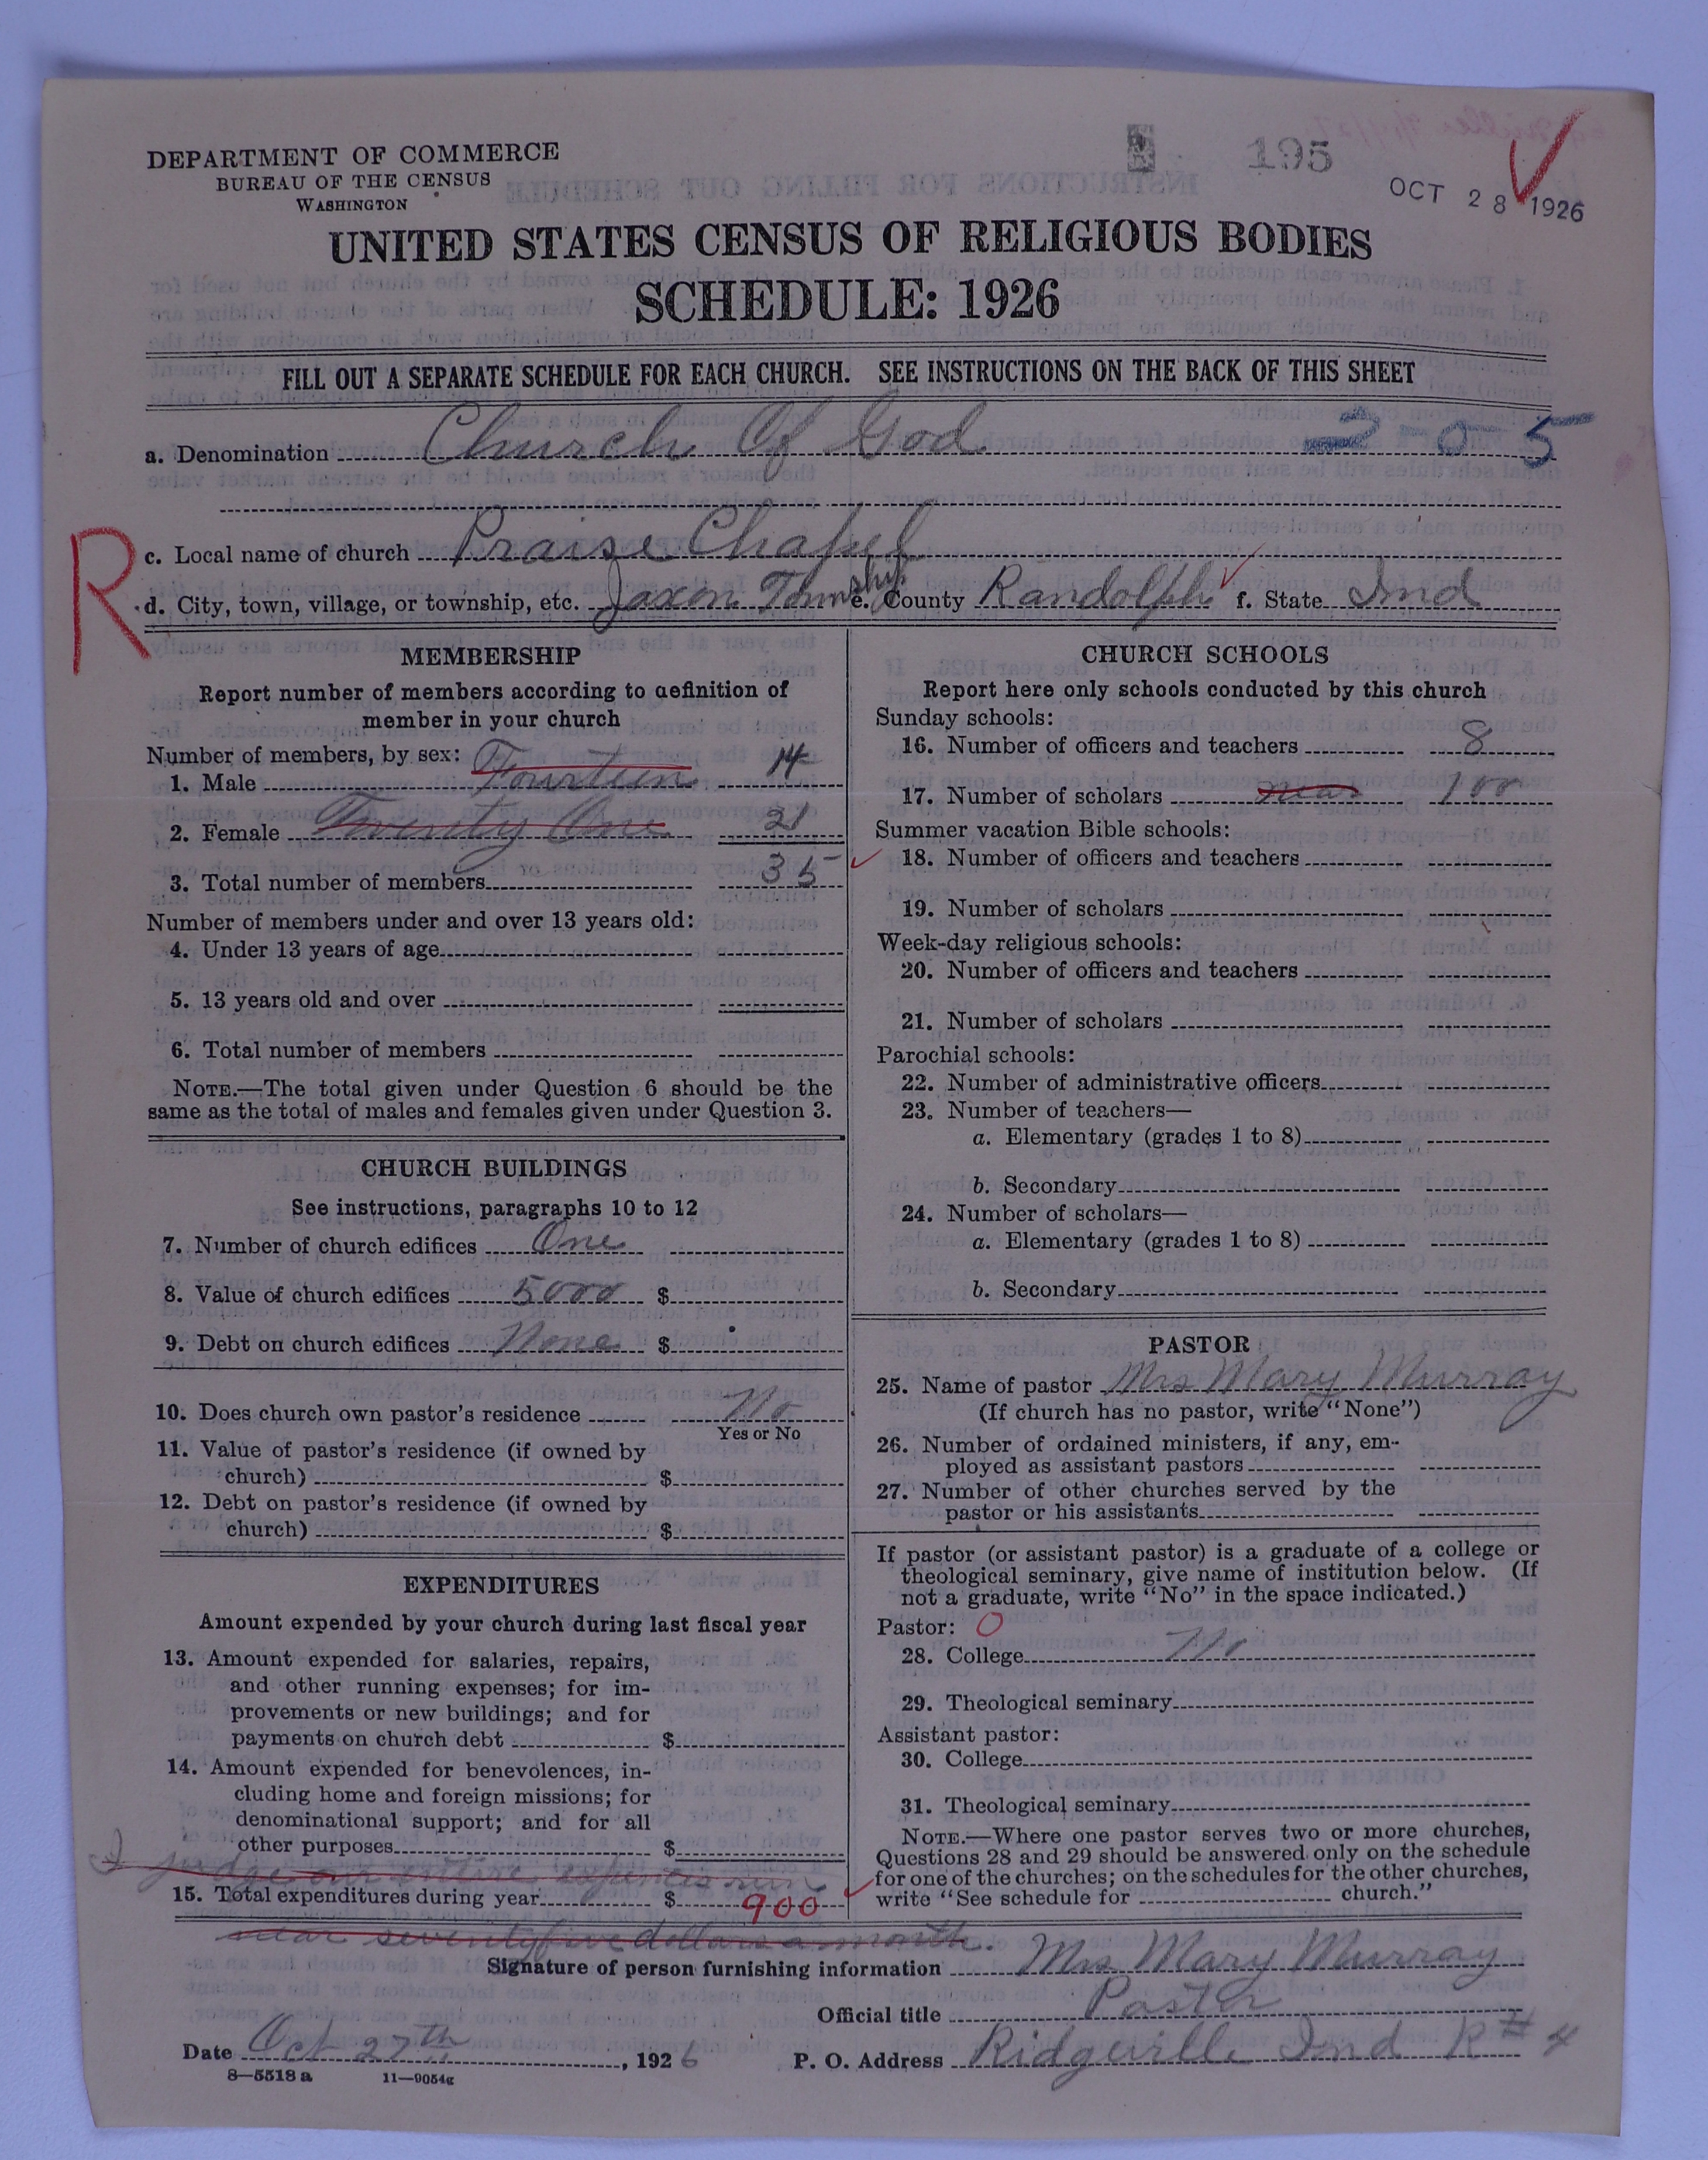 195
OCT 28 1926
DEPARTMENT OF COMMERCE
BUREAU OF THE CENSUS
WASHINGTON
UNITED STATES CENSUS OF RELIGIOUS BODIES
SCHEDULE: 1926
FILL OUT A SEPARATE SCHEDULE FOR EACH CHURCH. SEE INSTRUCTIONS ON THE BACK OF THIS SHEET
a. Denomination Church Of God 2-0-5
R
c. Local name of church Praise Chapel
d. City, town, village, or township, etc. Jaxon Township e. County Randolph f. State Ind
MEMBERSHIP
Report number of members according to definition of
member in your church
Number of members, by sex:
1. Male Fourteen 14
2. Female Twenty One 21
3. Total number of members 35
Number of members under and over 13 years old:
4. Under 13 years of age
5. 13 years old and over
6. Total number of members
NOTE.—The total given under Question 6 should be the
same as the total of males and females given under Question 3.
CHURCH BUILDINGS
See instructions, paragraphs 10 to 12
7. Number of church edifices One
8. Value of church edifices 5000 $
9. Debt on church edifices None $
10. Does church own pastor's residence No
Yes or No
11. Value of pastor's residence (if owned by
church) $
12. Debt on pastor's residence (if owned by
church) $
EXPENDITURES
Amount expended by your church during last fiscal year
13. Amount expended for salaries, repairs,
and other running expenses; for im-
provements or new buildings; and for
payments on church debt $
14. Amount expended for benevolences, in-
cluding home and foreign missions; for
denominational support; and for all
other purposes $
I judge our entire expences run
15. Total expenditures during year $ 900
near seventyfive dollars a month.
CHURCH SCHOOLS
Report here only schools conducted by this church
Sunday schools:
16. Number of officers and teachers 8
17. Number of scholars near 100
Summer vacation Bible schools:
18. Number of officers and teachers
19. Number of scholars
Week-day religious schools:
20. Number of officers and teachers
21. Number of scholars
Parochial schools:
22. Number of administrative officers
23. Number of teachers—
a. Elementary (grades 1 to 8)
b. Secondary
24. Number of scholars—
a. Elementary (grades 1 to 8)
b. Secondary
PASTOR
25. Name of pastor Mrs Mary Murray
(If church has no pastor, write "None")
26. Number of ordained ministers, if any, em-
ployed as assistant pastors
27. Number of other churches served by the
pastor or his assistants
If pastor (or assistant pastor) is a graduate of a college or
theological seminary, give name of institution below. (If
not a graduate, write "No" in the space indicated.)
Pastor: 0
28. College No
29. Theological seminary
Assistant pastor:
30. College
31. Theological seminary
NOTE.—Where one pastor serves two or more churches,
Questions 28 and 29 should be answered only on the schedule
for one of the churches; on the schedules for the other churches,
write "See schedule for church."
Signature of person furnishing information Mrs Mary Murray
Official title Pastor
Date Oct 27th, 1926 P. O. Address Ridgeville Ind R# 4
8—5518a 11—9054g